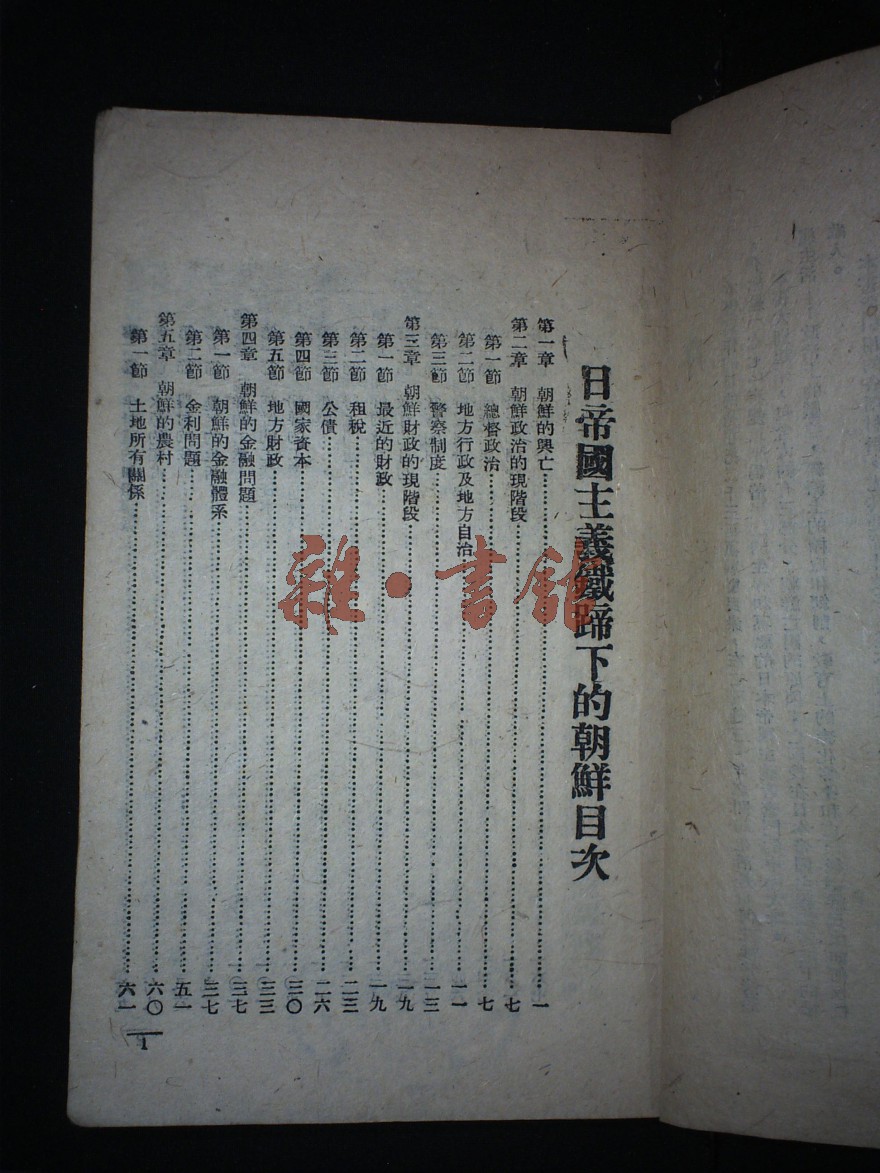 日帝國主義鐵蹄下的朝鮮目次
第一章 朝鮮的興亡……一
第二章 朝鮮政治的現階段……七
第一節 總督政治……七
第二節 地方行政及地方自治……一一
第三節 警察制度……一三
第三章 朝鮮財政的現階段……一九
第一節 最近的財政……一九
第二節 租稅……二三
第三節 公債……二六
第四節 國家資本……三〇
第五節 地方財政……三三
第四章 朝鮮的金融問題……三七
第一節 朝鮮的金融體系……三七
第二節 金利問題……五一
第五章 朝鮮的農村……六〇
第一節 土地所有關係……六一
1
雜·書館